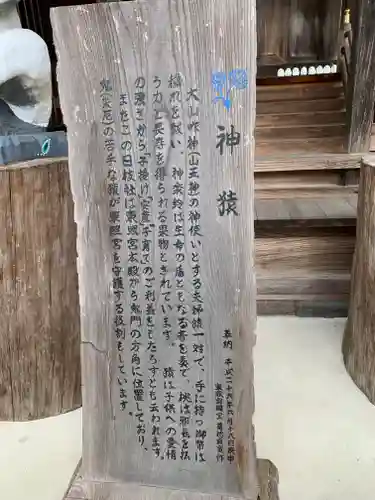 神猿
大山咋神(山王神)の神使いとする夫婦猿一対で、手に持つ御幣は
穢れを祓い、神楽鈴は生命の盾ともなる音を奏で、桃は邪気を払
う力と長寿を得られる果物とされています。猿は子供への愛情
の強さから「子授け」「安産」「子育て」のご利益をもたらすとも云われます。
またこの日枝社は東照宮本殿から鬼門の方角に位置しており、
鬼(災厄)の苦手な猿が東照宮を守護する役割もしています。
奉納 平成二十八年